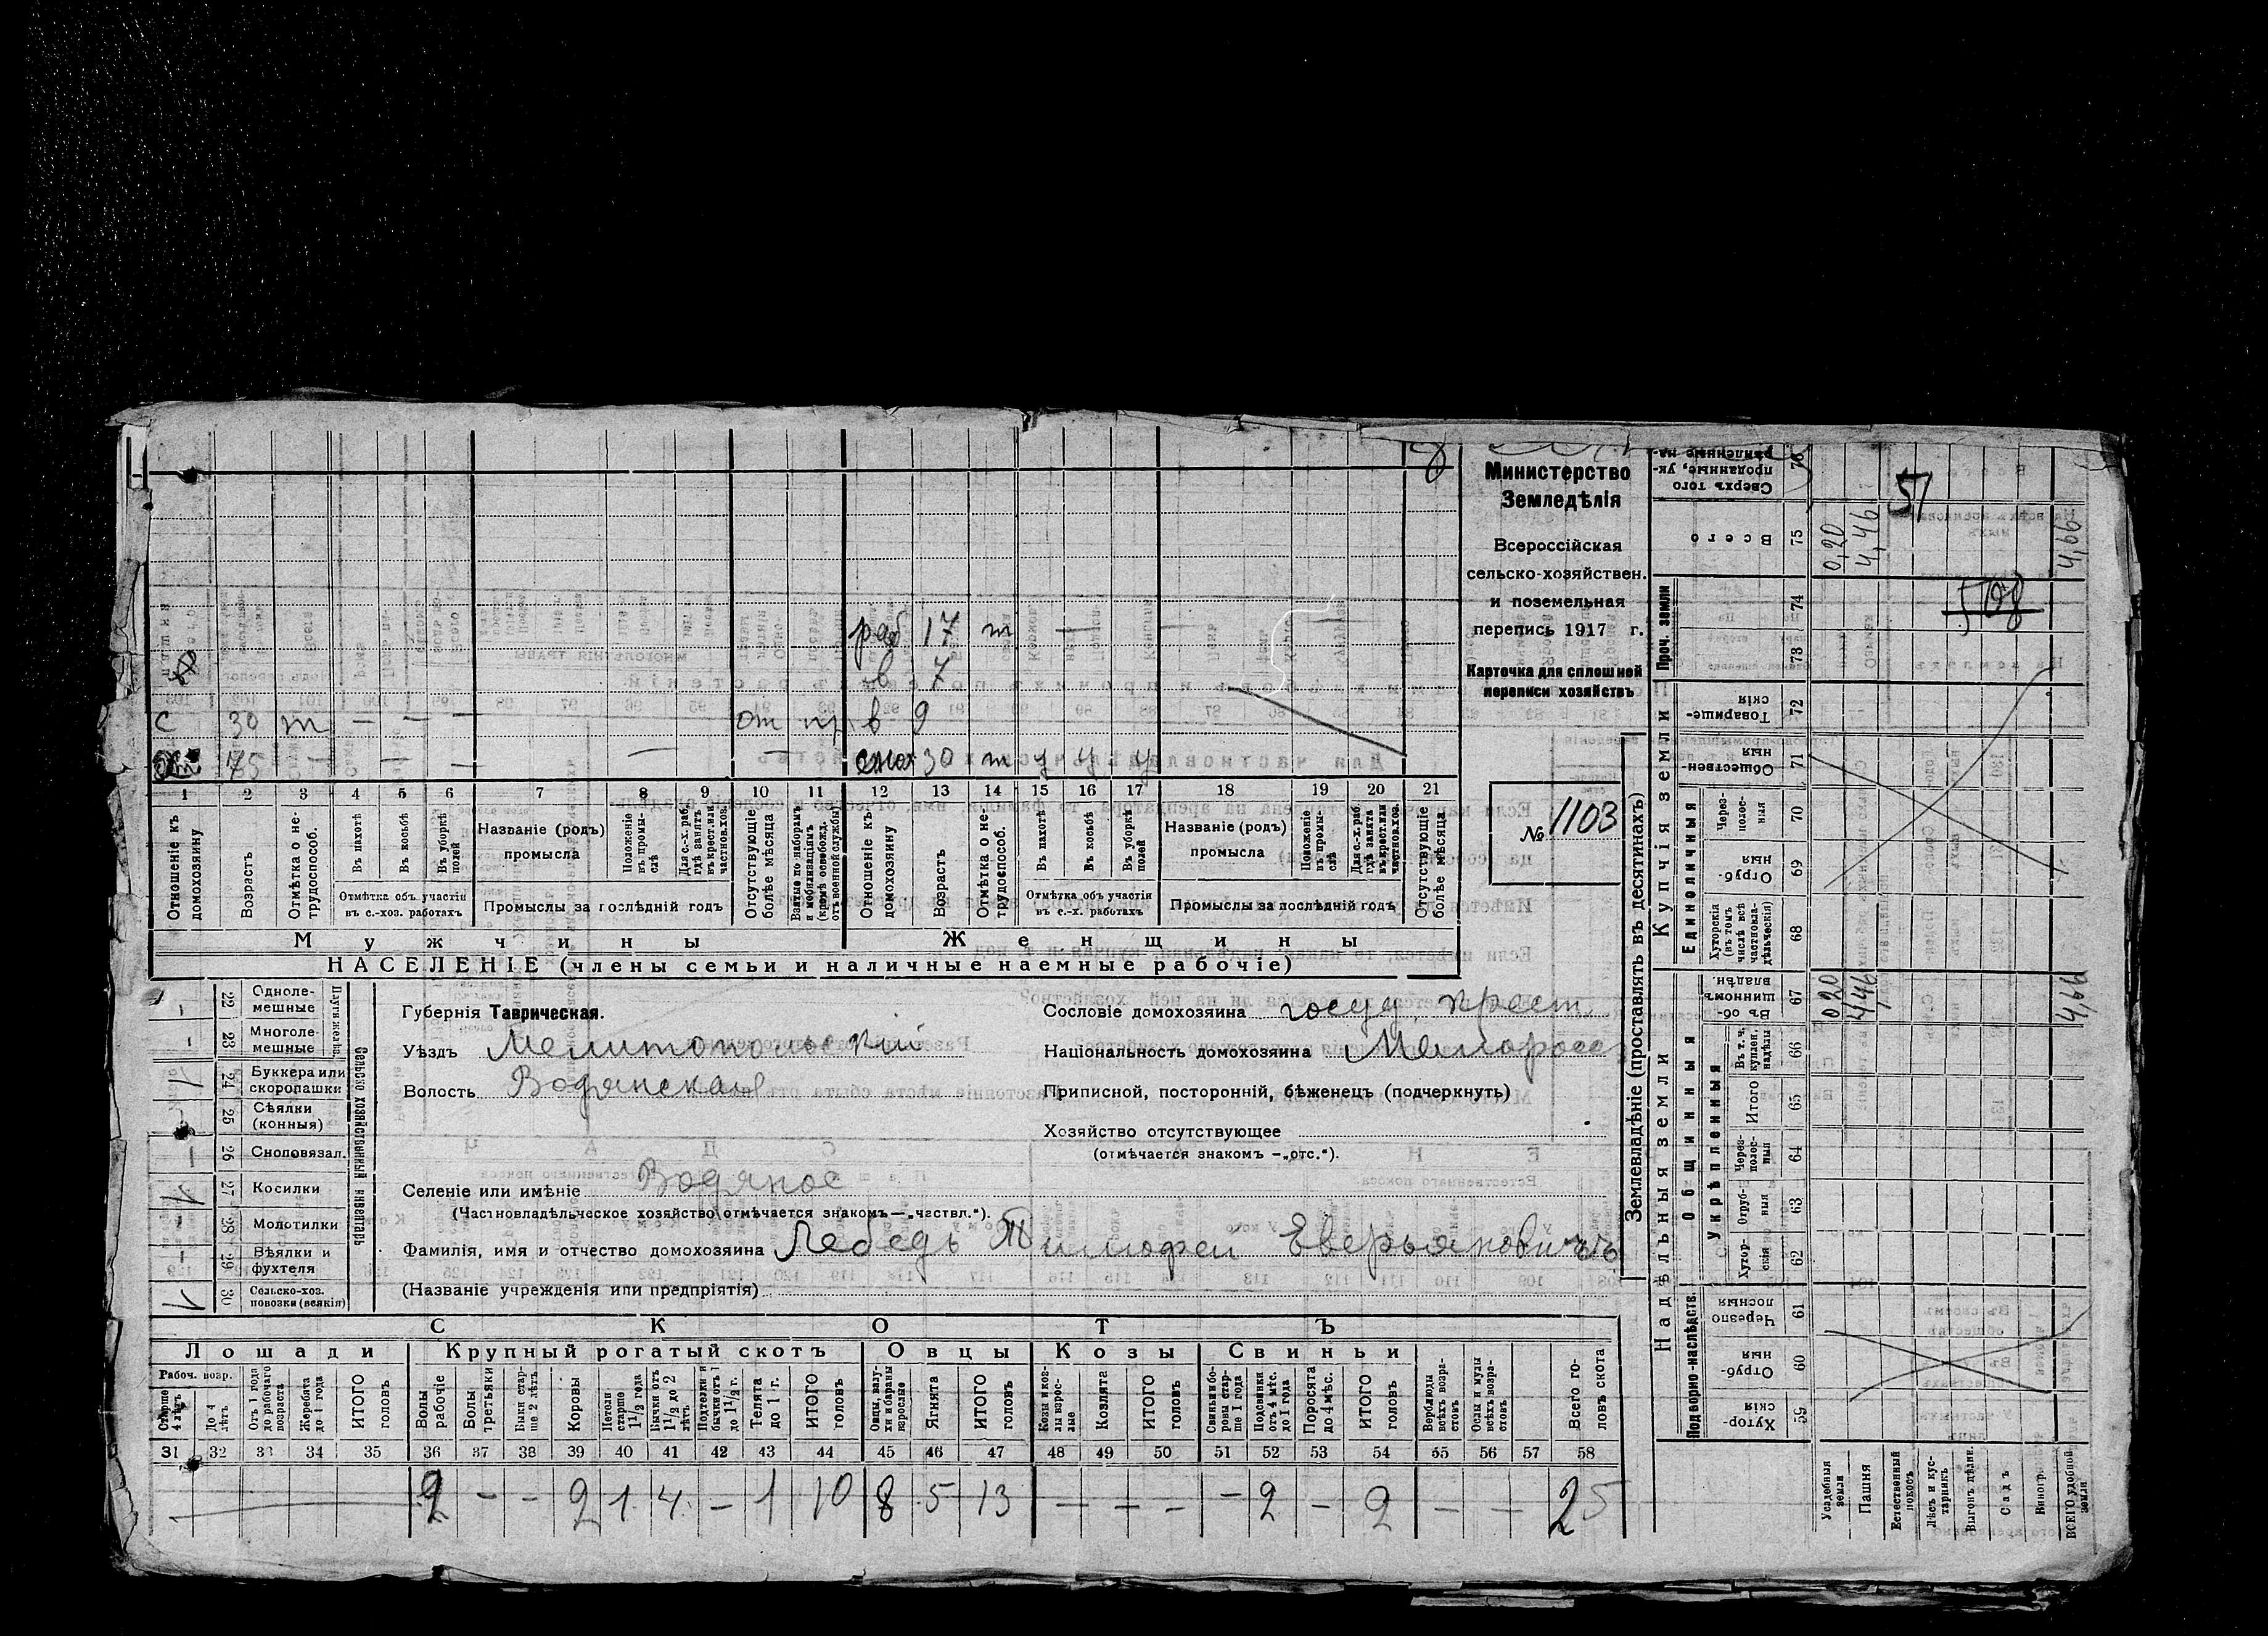 Министерство
Земледѣлія
Всероссійская
сельско-хозяйствен.
и поземельная
перепись 1917 г.
Карточка для сплошной
переписи хозяйствъ
№ 1103
раб 17 т — — —
в 7
с 30 т — — — от пр. в 9
75 — — — — — снох 30 т у у у
1 2 3 4 5 6 7 8 9 10 11 12 13 14 15 16 17 18 19 20 21
Отношеніе къ домохозяину
Возрастъ
Отмѣтка о нетрудоспособ.
Въ пахотѣ
Въ косьбѣ
Въ уборкѣ полей
Отмѣтка объ участіи
въ с.-хоз. работахъ
Названіе (родъ)
промысла
Положеніе въ промыслѣ
Для с.-х. раб. гдѣ занятъ въ крест. или частнов. хоз.
Промыслы за послѣдній годъ
Отсутствующіе болѣе мѣсяца
Взятые по наборамъ и мобилизаціямъ (кромѣ освобожд. отъ военной службы)
Отношеніе къ домохозяину
Возрастъ
Отмѣтка о нетрудоспособ.
Въ пахотѣ
Въ косьбѣ
Въ уборкѣ полей
Отмѣтка объ участіи
въ с.-х. работахъ
Названіе (родъ)
промысла
Положеніе въ промыслѣ
Для с.-х. раб. гдѣ занята въ крест. или частнов. хоз.
Промыслы за послѣдній годъ
Отсутствующіе болѣе мѣсяца
Мужчины Женщины
НАСЕЛЕНІЕ (члены семьи и наличные наемные рабочіе)
Губернія Таврическая.
Уѣздъ Мелитопольскій
Волость Водянская
Сословіе домохозяина госуд. крест.
Національность домохозяина Малоросс
Приписной, посторонній, бѣженецъ (подчеркнуть)
Хозяйство отсутствующее
(отмѣчается знакомъ —„отс.“).
Селеніе или имѣніе Водяное
(Частновладѣльческое хозяйство отмѣчается знакомъ—„частвл.“).
Фамилія, имя и отчество домохозяина Лебедь Тимофей Еверьяновичъ
(Названіе учрежденія или предпріятія)
Сельско хозяйственный инвентарь
— 22 Однолемешные
— 23 Многолемешные
1 24 Буккера или скоропашки
25 Сѣялки (конныя)
— 26 Сноповязал.
1 27 Косилки
— 28 Молотилки
— 29 Вѣялки и фухтеля
1 30 Сельско-хоз. повозки (всякія)
СКОТЪ
Лошади Крупный рогатый скотъ Овцы Козы Свиньи
Рабоч. возр.
Старше 4 лѣтъ
До 4 лѣтъ
Отъ 1 года до рабочаго возраста
Жеребята до 1 года
ИТОГО головъ
Волы рабочіе
Волы третьяки
Быки старше 2 лѣтъ
Коровы
Нетели старше 1½ года
Бычки отъ 1½ до 2 лѣтъ
Подтелки и бычки отъ 1 до 1½ г.
Телята до 1 г.
ИТОГО головъ
Овцы, валухи и бараны взрослые
Ягнята
ИТОГО головъ
Козы и козлы взрослые
Козлята
ИТОГО головъ
Свиньи и боровы старше 1 года
Подсвинки отъ 4 мѣс. до 1 года
Поросята до 4 мѣс.
ИТОГО головъ
Верблюды всѣхъ возрастовъ
Ослы и мулы всѣхъ возрастовъ
Всего головъ скота
31 32 33 34 35 36 37 38 39 40 41 42 43 44 45 46 47 48 49 50 51 52 53 54 55 56 57 58
2 — — 2 1 4 — 1 10 8 5 13 — — — — 2 — 2 — — 25
Землевладѣніе (проставлять въ десятинахъ)
Надѣльныя земли
Купчія земли
Проч. земли
Подворно-наслѣдств.
Общинныя
Укрѣпленныя
Единоличныя
Сверхъ того проданныя, 76
Всего 75 0,20 4,46 4,66
51
508
74
73
Товарищескія 72
Общественныя 71
Черезполосныя 70
Отрубныя 69
Хуторскія (въ томъ числѣ всѣ частновладѣльческія) 68
Въ общинномъ владѣн. 67 0,20 4,46 4,66
Въ т. ч. куплен. надѣлы 66
Итого 65
Черезполосныя 64
Отрубныя 63
Хуторскія 62
Черезполосныя 61
Отрубныя 60
Хуторскія 59
Усадебныя земли
Пашня
Естественный покосъ
Лѣсъ и кустарникъ
Выгонъ дѣлян.
Садъ
Виногр.
ВСЕГО удобной земли